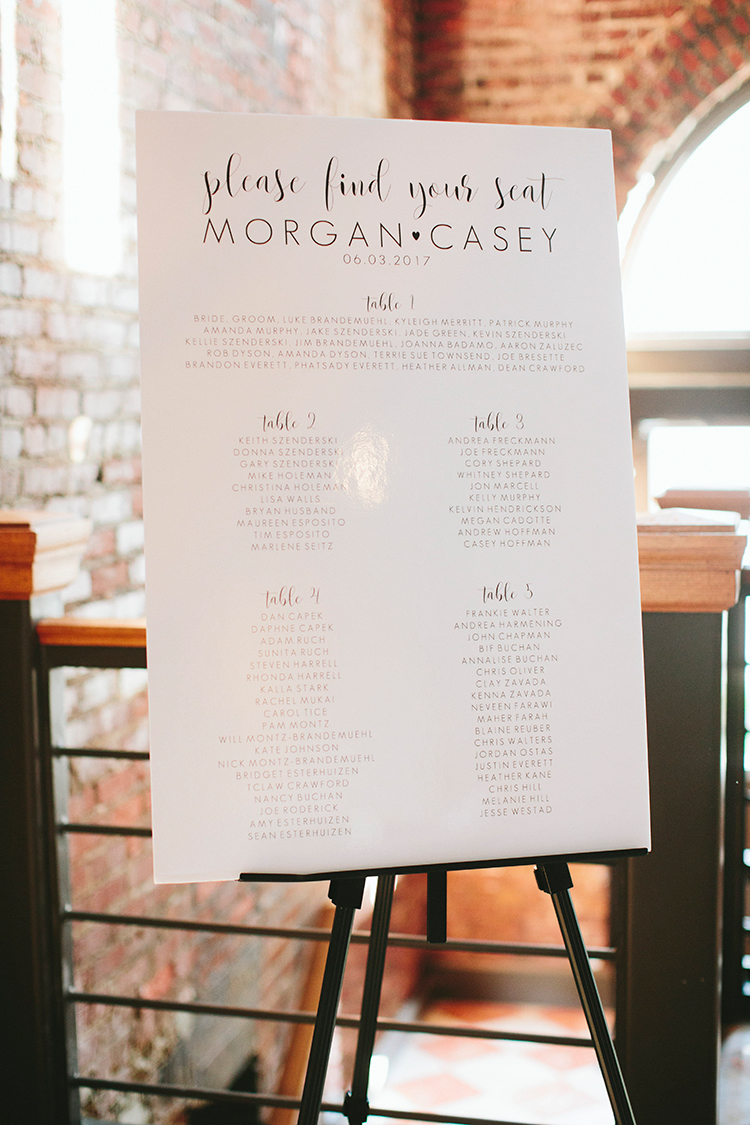 please find your seat
MORGAN♥CASEY
06.03.2017
table 1
BRIDE, GROOM, LUKE BRANDEMUEHL, KYLEIGH MERRITT, PATRICK MURPHY
AMANDA MURPHY, JAKE SZENDERSKI, JADE GREEN, KEVIN SZENDERSKI
KELLIE SZENDERSKI, JIM BRANDEMUEHL, JOANNA BADAMO, AARON ZALUZEC
ROB DYSON, AMANDA DYSON, TERRIE SUE TOWNSEND, JOE BRESETTE
BRANDON EVERETT, PHATSADY EVERETT, HEATHER ALLMAN, DEAN CRAWFORD
table 2
KEITH SZENDERSKI
DONNA SZENDERSKI
GARY SZENDERSKI
MIKE HOLEMAN
CHRISTINA HOLEMAN
LISA WALLS
BRYAN HUSBAND
MAUREEN ESPOSITO
TIM ESPOSITO
MARLENE SEITZ
table 3
ANDREA FRECKMANN
JOE FRECKMANN
CORY SHEPARD
WHITNEY SHEPARD
JON MARCELL
KELLY MURPHY
KELVIN HENDRICKSON
MEGAN CADOTTE
ANDREW HOFFMAN
CASEY HOFFMAN
table 4
DAN CAPEK
DAPHNE CAPEK
ADAM RUCH
SUNITA RUCH
STEVEN HARRELL
RHONDA HARRELL
KALLA STARK
RACHEL MUKAI
CAROL TICE
PAM MONTZ
WILL MONTZ-BRANDEMUEHL
KATE JOHNSON
NICK MONTZ-BRANDEMUEHL
BRIDGET ESTERHUIZEN
TCLAW CRAWFORD
NANCY BUCHAN
JOE RODERICK
AMY ESTERHUIZEN
SEAN ESTERHUIZEN
table 5
FRANKIE WALTER
ANDREA HARMENING
JOHN CHAPMAN
BIF BUCHAN
ANNALISE BUCHAN
CHRIS OLIVER
CLAY ZAVADA
KENNA ZAVADA
NEVEEN FARAWI
MAHER FARAH
BLAINE REUBER
CHRIS WALTERS
JORDAN OSTAS
JUSTIN EVERETT
HEATHER KANE
CHRIS HILL
MELANIE HILL
JESSE WESTAD